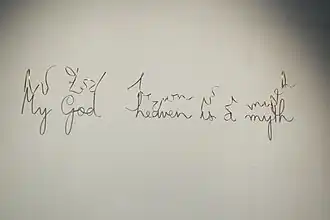 My God heaven is a myth